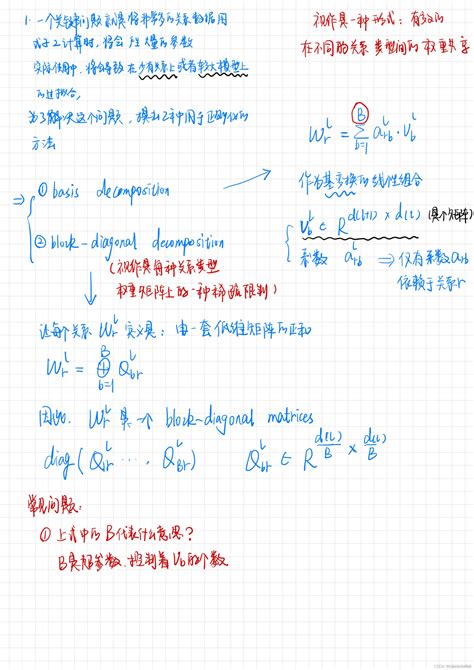 1. 一个关键问题就是将种类多的关系数据用
式子2计算时，将会产生大量的参数
实际使用中，将会导致在少有关系上或者较大模型上
的过拟合，
为了解决这个问题，提出2种用于正则化的
方法
⇒ ① basis decomposition
② block-diagonal decomposition
(视作是每种关系类型
权重矩阵上的一种稀疏限制)
视作是一种形式：有效的
在不同的关系类型间的权重共享
W_r^l = Σ_{b=1}^{B} a_{rb}^l · V_b^l
作为基变换的线性组合
V_b^l ∈ R^{d(l+1) × d(l)} (是个矩阵)
系数 a_{rb}^l ⇒ 仅有系数 a_{rb}
依赖于关系r
让每个关系 W_r^l 定义是：由一套低维矩阵的正和
W_r^l = ⊕_{b=1}^{B} Q_{br}^l
因此，W_r^l 是一个 block-diagonal matrices
diag(Q_{1r}^l ···, Q_{Br}^l) Q_{br}^l ∈ R^{d(l)/B × d(l)/B}
常见问题：
① 上式中的B代表什么意思？
B是超参数，控制着V_b的个数